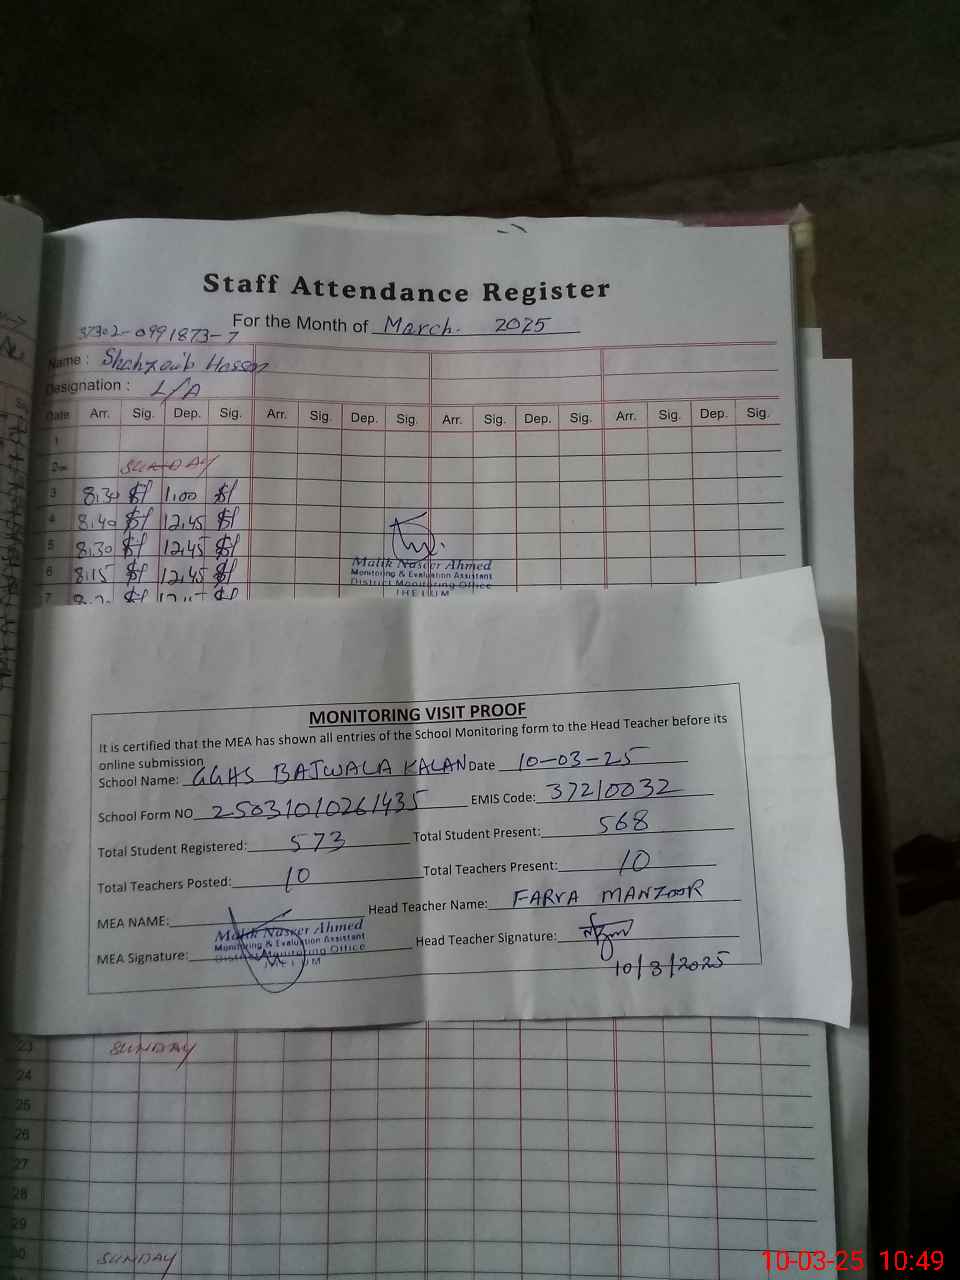 Staff Attendance Register
For the Month of March. 2025
37302-0991873-7
Name : Shahzaib Hassan
Designation : L/A
Date Arr. Sig. Dep. Sig. Arr. Sig. Dep. Sig. Arr. Sig. Dep. Sig. Arr. Sig. Dep. Sig.
1
2 SUNDAY
3 8.30 1.00
4 8.40 12.45
5 8.30 12.45
6 8.15 12.45
7
Malik Naseer Ahmed
Monitoring & Evaluation Assistant
District Monitoring Office
JHELUM
MONITORING VISIT PROOF
It is certified that the MEA has shown all entries of the School Monitoring form to the Head Teacher before its
online submission
School Name: GGHS BAJWALA KALAN Date 10-03-25
School Form NO 25031010261435 EMIS Code: 37210032
Total Student Registered: 573 Total Student Present: 568
Total Teachers Posted: 10 Total Teachers Present: 10
MEA NAME: Head Teacher Name: FARVA MANZOOR
Malik Naseer Ahmed
Monitoring & Evaluation Assistant
District Monitoring Office
JHELUM
MEA Signature: Head Teacher Signature:
10/3/2025
23 SUNDAY
24
25
26
27
28
29
30 SUNDAY
10-03-25 10:49